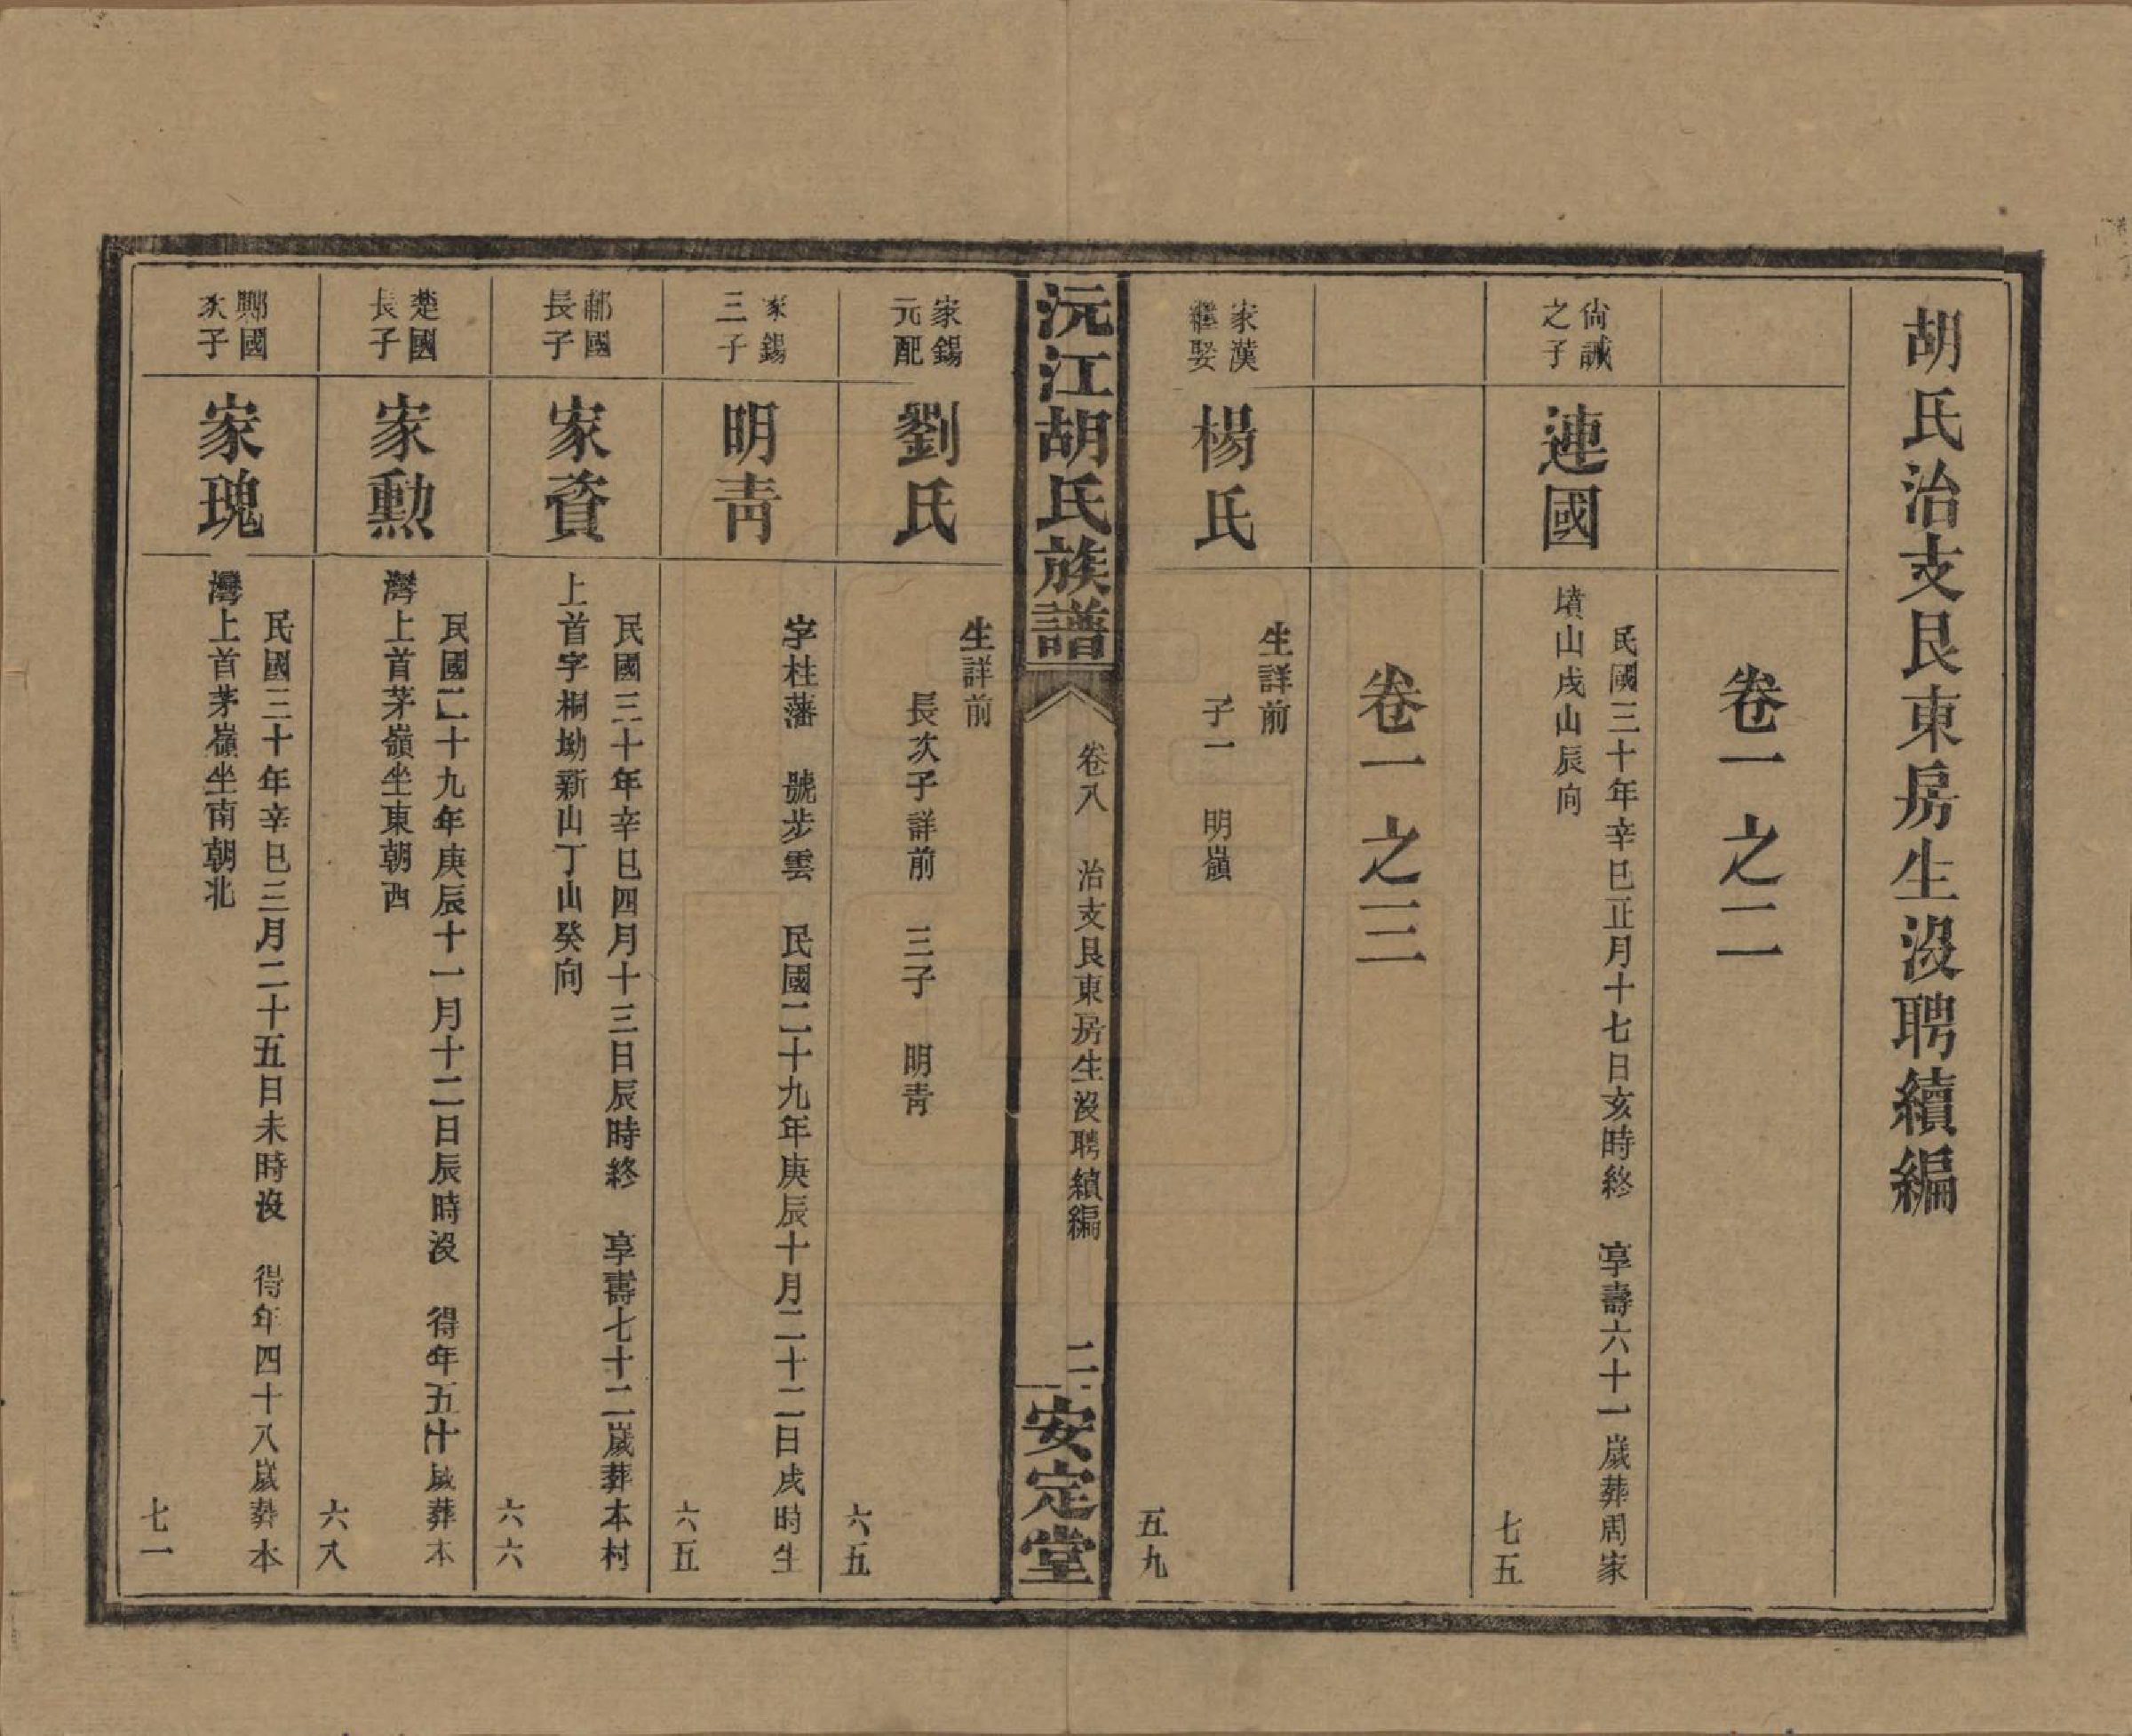 胡氏治支艮東房生沒聘續編
卷一之二
尙誠
之子
連國
民國三十年辛巳正月十七日亥時終　享壽六十一歲葬周家
墳山戌山辰向
七五
卷一之三
家漢
繼娶
楊氏
生詳前
子一　明嶺
五九
沅江胡氏族譜
卷八　治支艮東房生沒聘續編
二
安定堂
家錫
元配
劉氏
生詳前
長次子詳前　三子　明靑
六五
家錫
三子
明靑
字柱藩　號步雲　民國二十九年庚辰十月二十二日戌時生
六五
郙國
長子
家資
民國三十年辛巳四月十三日辰時終　享壽七十二歲葬本村
上首字桐坳新山丁山癸向
六六
楚國
長子
家勳
民國二十九年庚辰十一月十二日辰時沒　得年五十歲葬本
灣上首茅嶺坐東朝西
六八
鄹國
次子
家瑰
民國三十年辛巳三月二十五日未時沒　得年四十八歲葬本
灣上首茅嶺坐南朝北
七一